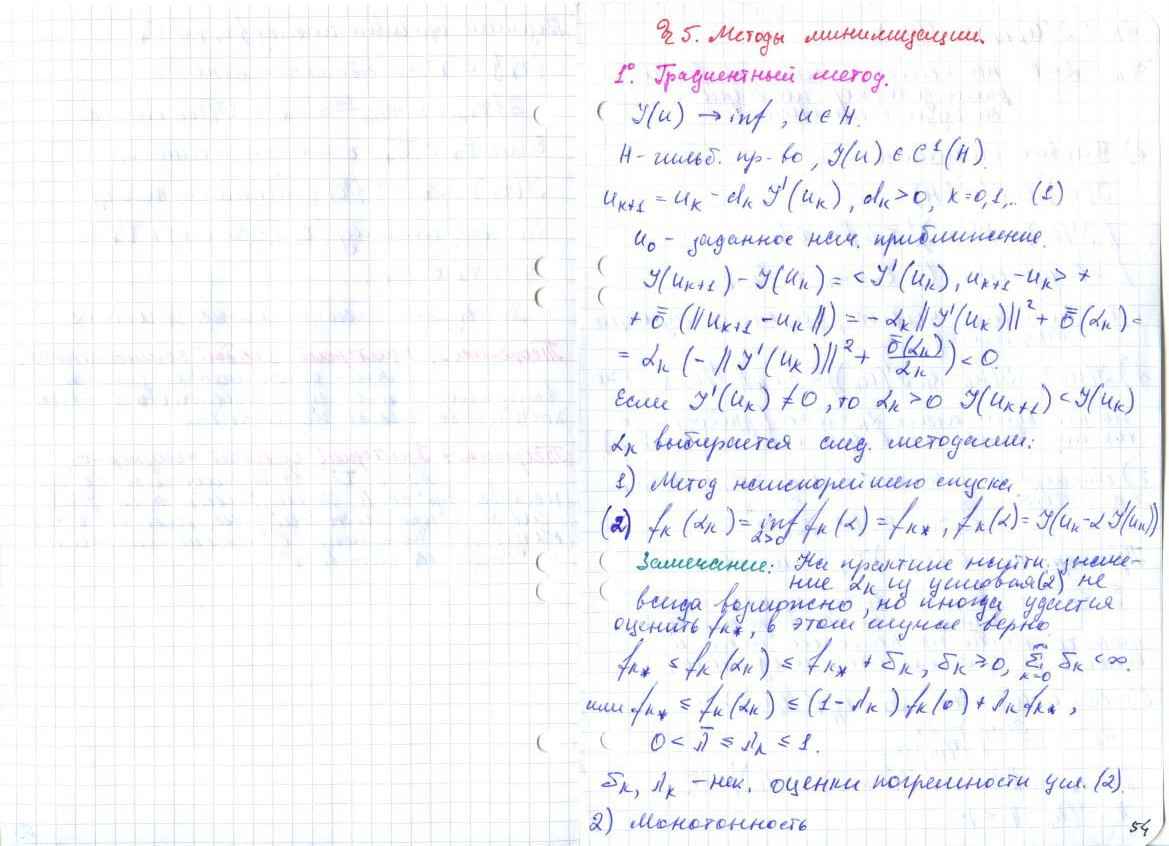 § 5. Методы минимизации.
1°. Градиентный метод.
J(u) → inf, u ∈ H.
H - гильб. пр-во, J(u) ∈ C¹(H).
u_{k+1} = u_k - α_k J'(u_k), α_k > 0, k = 0,1,.. (1)
u_0 - заданное нач. приближение.
J(u_{k+1}) - J(u_k) = <J'(u_k), u_{k+1} - u_k> +
+ ō(||u_{k+1} - u_k||) = -α_k ||J'(u_k)||² + ō(α_k) =
= α_k (-||J'(u_k)||² + ō(α_k)/α_k) < 0.
Если J'(u_k) ≠ 0, то α_k > 0 J(u_{k+1}) < J(u_k)
α_k выбирается след. методами:
1) Метод наискорейшего спуска.
(2) f_k(α_k) = inf_{α>0} f_k(α) = f_{k*}, f_k(α) = J(u_k - α J'(u_k))
Замечание: На практике найти значе-
ние α_k из условия (2) не
всегда возможно, но иногда удается
оценить f_{k*}, в этом случае верно
f_{k*} ≤ f_k(α_k) ≤ f_{k*} + δ_k, δ_k ≥ 0, Σ_{k=0}^∞ δ_k < ∞.
или f_{k*} ≤ f_k(α_k) ≤ (1 - λ_k) f_k(0) + λ_k f_{k*},
0 < λ̄ ≤ λ_k ≤ 1.
δ_k, λ_k - нек. оценки погрешности усл. (2).
2) Монотонность
54